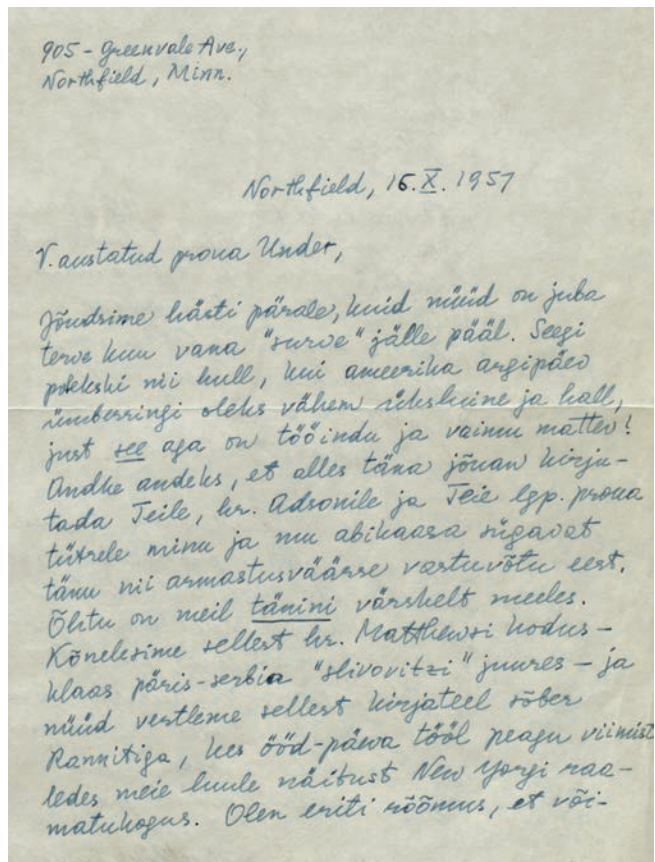 905 - Greenvale Ave.,
Northfield, Minn.
Northfield, 16.X.1957
V. austatud proua Under,
Jõudsime hästi pärale, kuid nüüd on juba
terve kuu vana "surve" jälle pääl. Seegi
polekski nii hull, kui ameerika argipäev
ümberringi oleks vähem üksluine ja hall,
just see aga on tööindu ja vaimu mattev!
Andke andeks, et alles täna jõuan kirju-
tada Teile, hr. Adsonile ja Teie lgp. proua
tütrele minu ja mu abikaasa sügavat
tänu nii armastusväärse vastuvõtu eest.
Õhtu on meil tänini värskelt meeles.
Kõnelesime sellest hr. Matthewsi kodus -
klaas päris-serbia "slivovitzi" juures - ja
nüüd vestleme sellest kirjateel sõber
Rannitiga, kes ööd-päeva tööl peagu viimist
ledes meie luule näitust New Yorgi raa-
matukogus. Olen eriti rõõmus, et või-